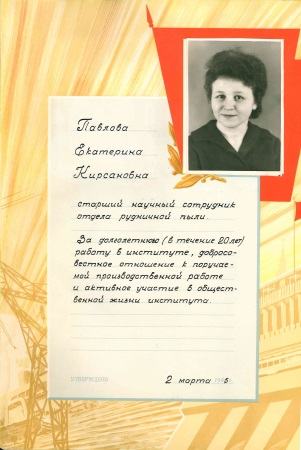 Павлова
Екатерина
Кирсановна
старший научный сотрудник
отдела рудничной пыли
За долголетнюю (в течение 20 лет)
работу в институте, добросо-
вестное отношение к поручае-
мой производственной работе
и активное участие в общест-
венной жизни института.
УТВЕРЖДЕНО
2 марта